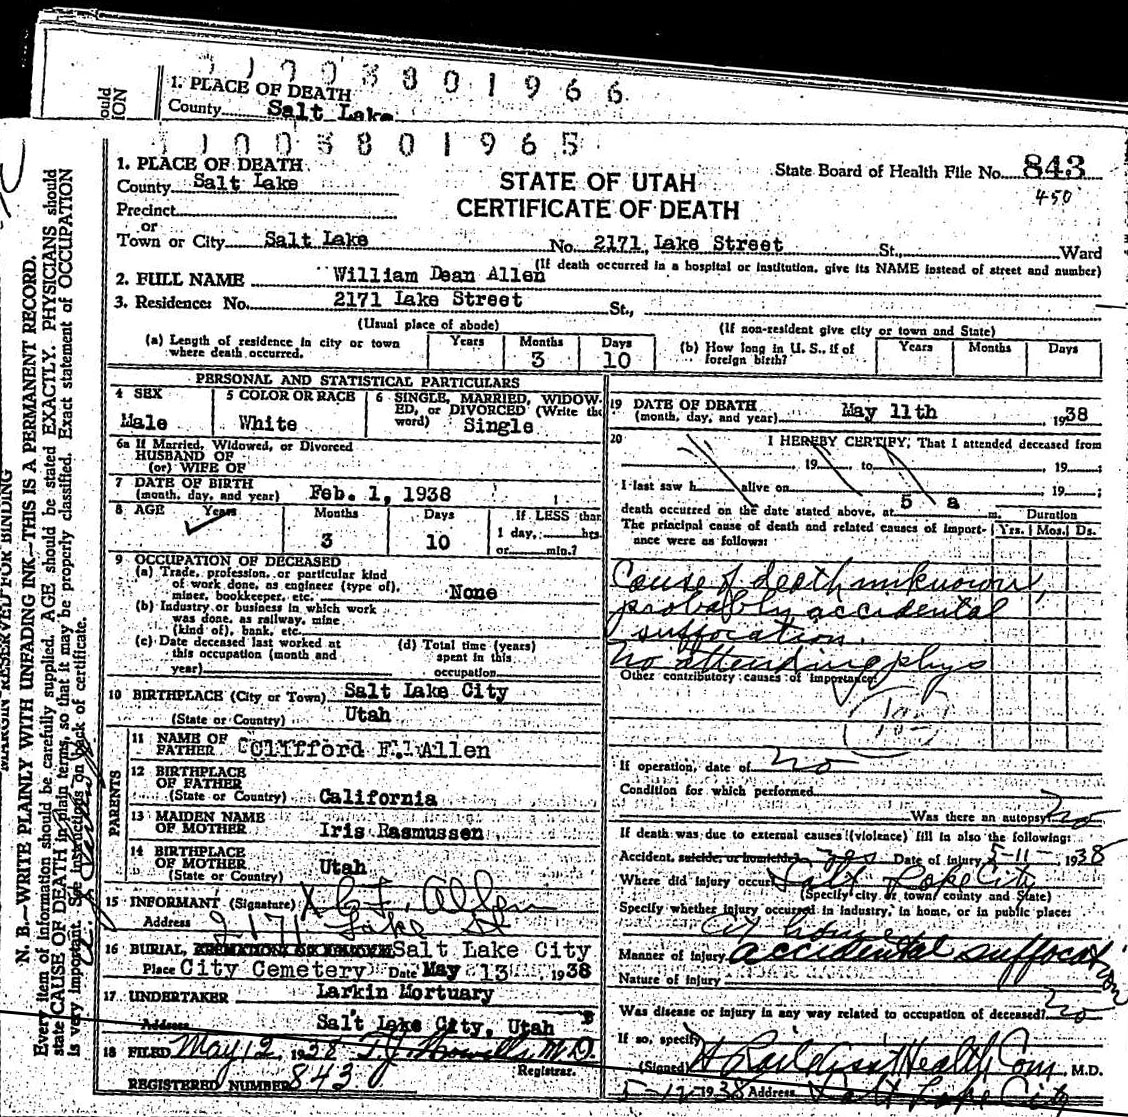 1 1 0 0 3 8 0 1 9 6 6
1. PLACE OF DEATH
County Salt Lake
ould
ION
1 1 0 0 3 8 0 1 9 6 5
1. PLACE OF DEATH
County Salt Lake
Precinct
or
Town or City Salt Lake No. 2171 Lake Street St., Ward
STATE OF UTAH
CERTIFICATE OF DEATH
State Board of Health File No. 843
450
(If death occurred in a hospital or institution, give its NAME instead of street and number)
2. FULL NAME William Dean Allen
3. Residence: No. 2171 Lake Street St.,
(Usual place of abode)
(If non-resident give city or town and State)
(a) Length of residence in city or town where death occurred.
Years Months Days
3 10
(b) How long in U. S., if of foreign birth?
Years Months Days
PERSONAL AND STATISTICAL PARTICULARS
4 SEX
Male
5 COLOR OR RACE
White
6 SINGLE, MARRIED, WIDOW-
ED, or DIVORCED (Write the
word) Single
6a If Married, Widowed, or Divorced
HUSBAND OF
(or) WIFE OF
7 DATE OF BIRTH
(month, day, and year) Feb. 1, 1938
8 AGE Years Months Days If LESS than
3 10 1 day, hrs.
or min.?
9 OCCUPATION OF DECEASED
(a) Trade, profession, or particular kind
of work done, as engineer (type of),
miner, bookkeeper, etc. None
(b) Industry or business in which work
was done, as railway, mine
(kind of), bank, etc.
(c) Date deceased last worked at
this occupation (month and
year)
(d) Total time (years)
spent in this
occupation
10 BIRTHPLACE (City or Town) Salt Lake City
(State or Country) Utah
PARENTS
11 NAME OF
FATHER Clifford F. Allen
12 BIRTHPLACE
OF FATHER
(State or Country) California
13 MAIDEN NAME
OF MOTHER Iris Rasmussen
14 BIRTHPLACE
OF MOTHER
(State or Country) Utah
15 INFORMANT (Signature) X C F. Allen
Address 2171 Lake St
16 BURIAL, CREMATION OR REMOVAL Salt Lake City
Place City Cemetery Date May 13 1938
17 UNDERTAKER Larkin Mortuary
Address Salt Lake City, Utah
18 FILED May 12, 1938 M.D.
Registrar.
REGISTERED NUMBER 843
19 DATE OF DEATH
(month, day, and year) May 11th, 1938
20 I HEREBY CERTIFY, That I attended deceased from
, 19 to , 19 ;
I last saw h alive on , 19 ;
death occurred on the date stated above, at 5 a m.
The principal cause of death and related causes of import-
ance were as follows:
Duration
Yrs. Mos. Ds.
Cause of death unknown,
probably accidental
suffocation.
No attending phys
Other contributory causes of importance:
If operation, date of no
Condition for which performed
Was there an autopsy no
If death was due to external causes (violence) fill in also the following:
Accident, suicide, or homicide yes Date of injury 5-11- 1938
Where did injury occur Salt Lake City
(Specify city or town, county and State)
Specify whether injury occurred in industry, in home, or in public place:
at home
Manner of injury accidental suffocation
Nature of injury
Was disease or injury in any way related to occupation of deceased? no
If so, specify
(Signed) Asst Health Com, M.D.
5-12-1938 Address Salt Lake City
MARGIN RESERVED FOR BINDING
N. B.—WRITE PLAINLY WITH UNFADING INK—THIS IS A PERMANENT RECORD.
Every item of information should be carefully supplied. AGE should be stated EXACTLY. PHYSICIANS should
state CAUSE OF DEATH in plain terms, so that it may be properly classified. Exact statement of OCCUPATION
is very important. See instructions on back of certificate.